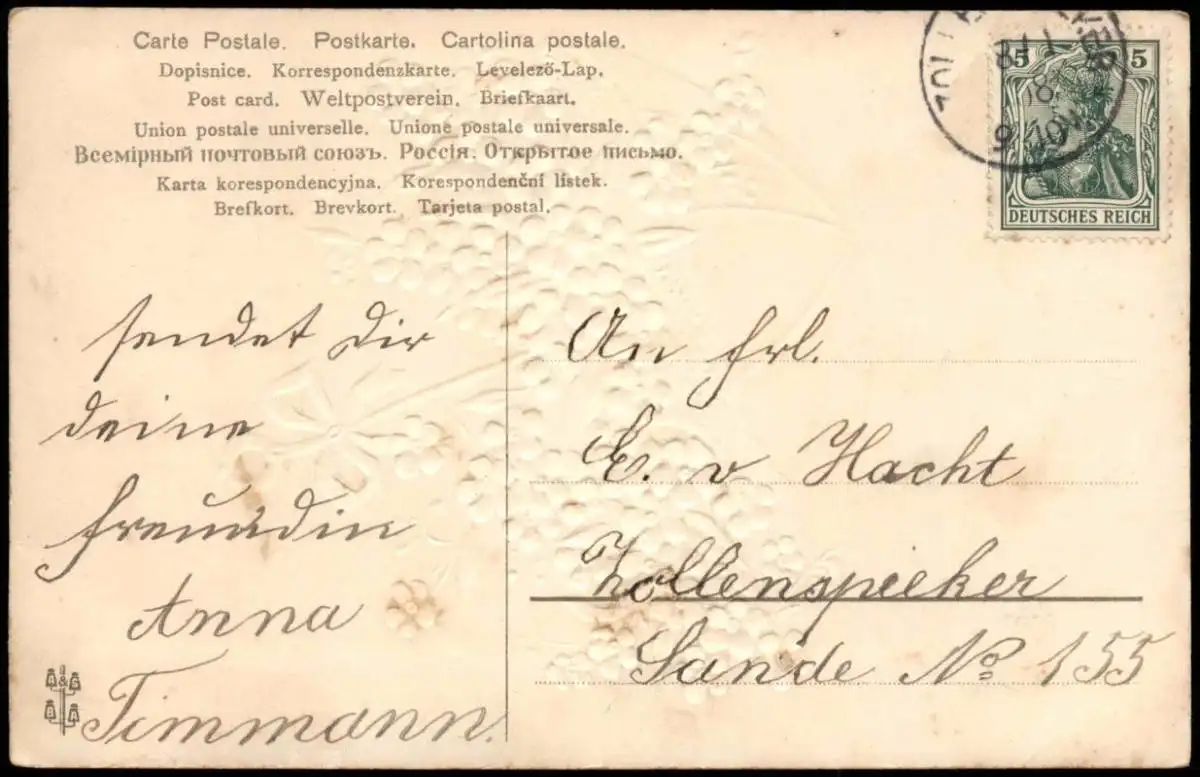 Carte Postale. Postkarte. Cartolina postale.
Dopisnice. Korrespondenzkarte. Levelező-Lap.
Post card. Weltpostverein. Briefkaart.
Union postale universelle. Unione postale universale.
Всемірный почтовый союзъ. Россія. Открытое письмо.
Karta korespondencyjna. Korespondenční lístek.
Brefkort. Brevkort. Tarjeta postal.
5 5
DEUTSCHES REICH
sendet dir
deine
freundin
Anna
Timmann.
An Frl.
E. v Hacht
Zollenspieker
Sande No 155